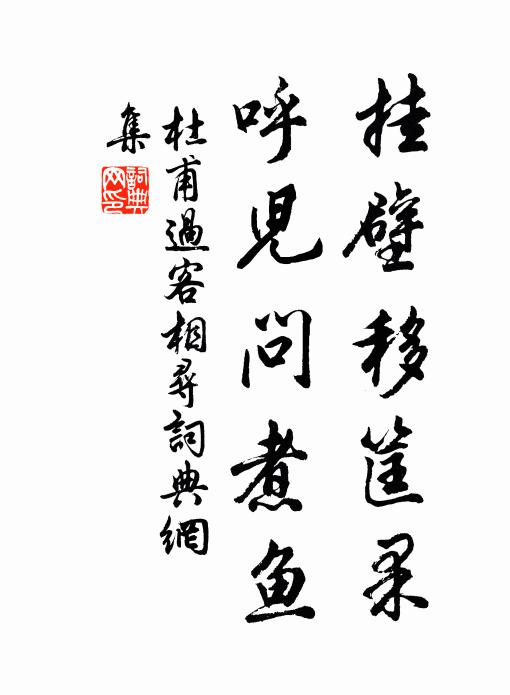 挂壁移筐果
呼児问煮鱼
杜甫過客相尋詞典網
集
詞典
网印